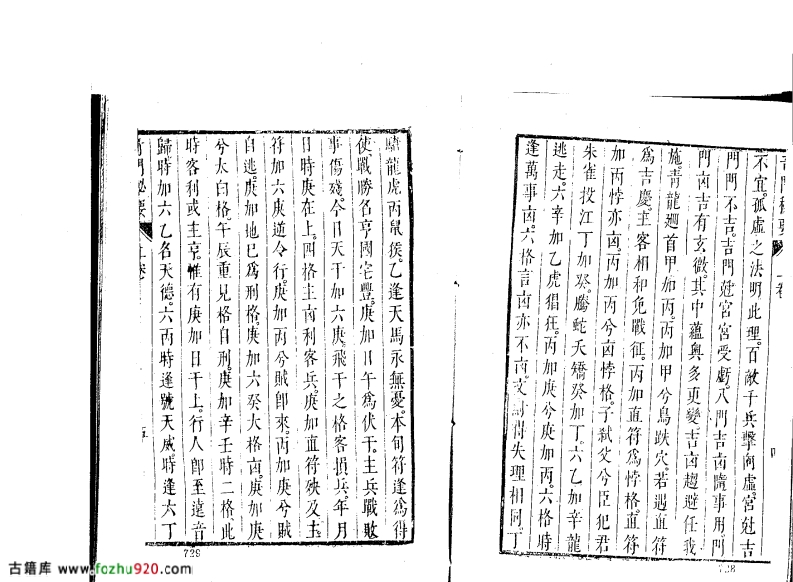 不宜。孤虛之法明此理。百敵千兵擊向虛。宮尅吉
門門不吉。吉門尅宮宮受虧。八門吉凶隨事用。門
門凶吉有玄微。其中蘊奧多更變。吉凶趨避任我
施。青龍廻首甲加丙。丙加甲兮鳥跌穴。若遇直符
爲吉慶。主客相和免戰征。丙加直符爲悖格。直符
加丙悖亦凶。丙加丙兮凶悖格。子弒父兮臣犯君
朱雀投江丁加癸。騰蛇夭矯癸加丁。六乙加辛龍
逃走。六辛加乙虎猖狂。丙加庚兮庚加丙。六格時
逢萬事凶。六格言凶亦不凶。得失理相同。丁
龍虎丙鼠侯。乙逢天馬永無憂。本旬符逢爲得
使。戰勝名亨國宅豐。庚加日午爲伏干。主兵戰敗
事傷殘。今日天干加六庚。飛干之格客損兵。年月
日時庚在上。四格主凶利客兵。庚加直符殃及主
符加六庚逆令行。庚加丙兮賊即來。丙加庚兮賊
自逃。庚加地巳爲刑格。庚加六癸大格凶。庚加庚
兮太白格。午辰重見格自刑。庚加辛壬時二格。此
時客利或主亨。惟有庚加日干上。行人即至遠音
歸。時加六乙名天德。六丙時逢號天威。時逢六丁
奇門秘要 上卷
729
728
古籍库 www.fozhu920.com